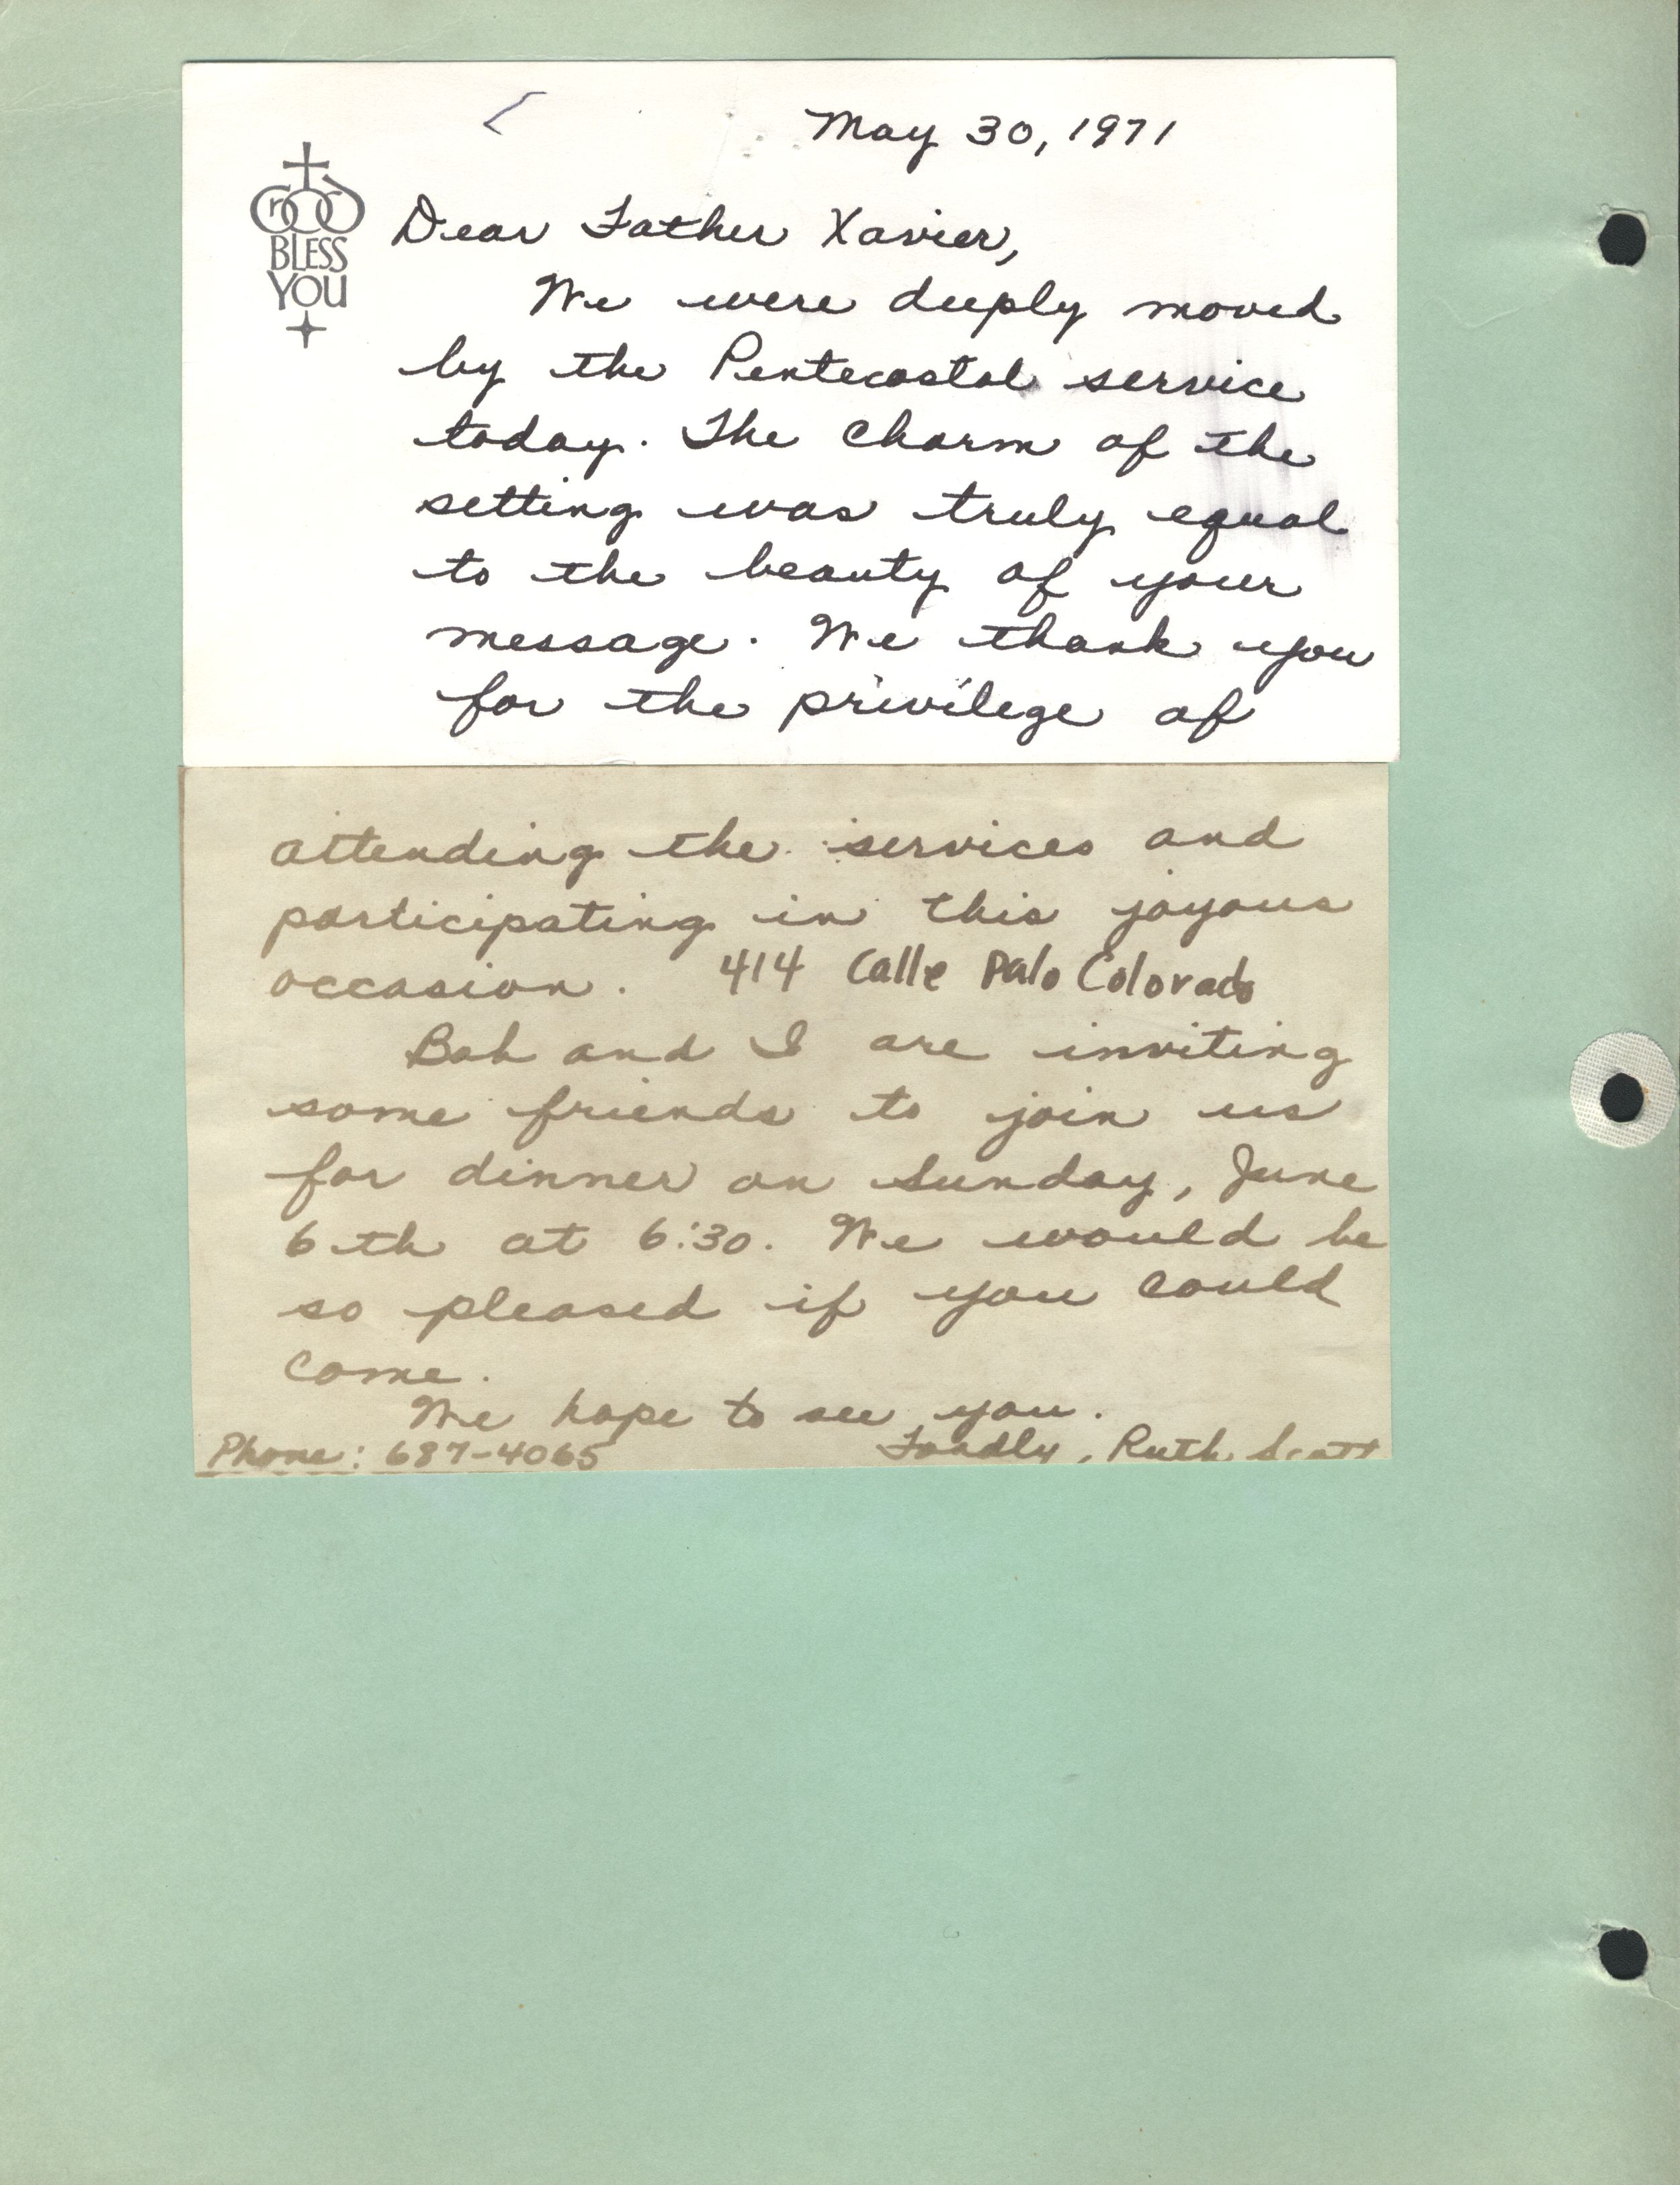 May 30, 1971
GOD
BLESS
YOU
Dear Father Xavier,
We were deeply moved
by the Pentecostal service
today. The charm of the
setting was truly equal
to the beauty of your
message. We thank you
for the privilege of
attending the services and
participating in this joyous
occasion. 414 Calle Palo Colorado
Bob and I are inviting
some friends to join us
for dinner on Sunday, June
6th at 6:30. We would be
so pleased if you could
come.
We hope to see you.
Phone: 687-4065 Fondly, Ruth Scott